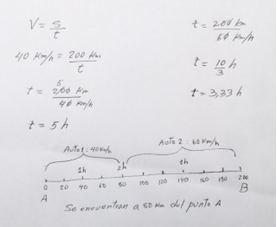 V = S/t
40 Km/h = 200 Km/t
t = 200 km/40 km/h
5
t = 5 h
t = 200 km/60 km/h
t = 10/3 h
t = 3,33 h
Auto 1: 40 Km/h
Auto 2: 60 Km/h
1h
2h
1h
0 20 40 60 80 100 120 140 160 180 200
A
B
Se encuentran a 80 Km del punto A